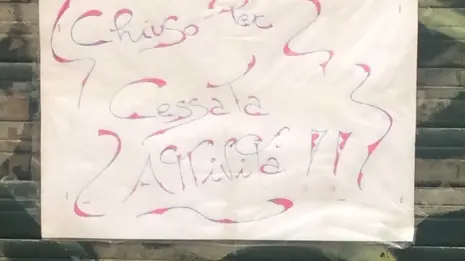 Chiuso Per
Cessata
Attività !!!